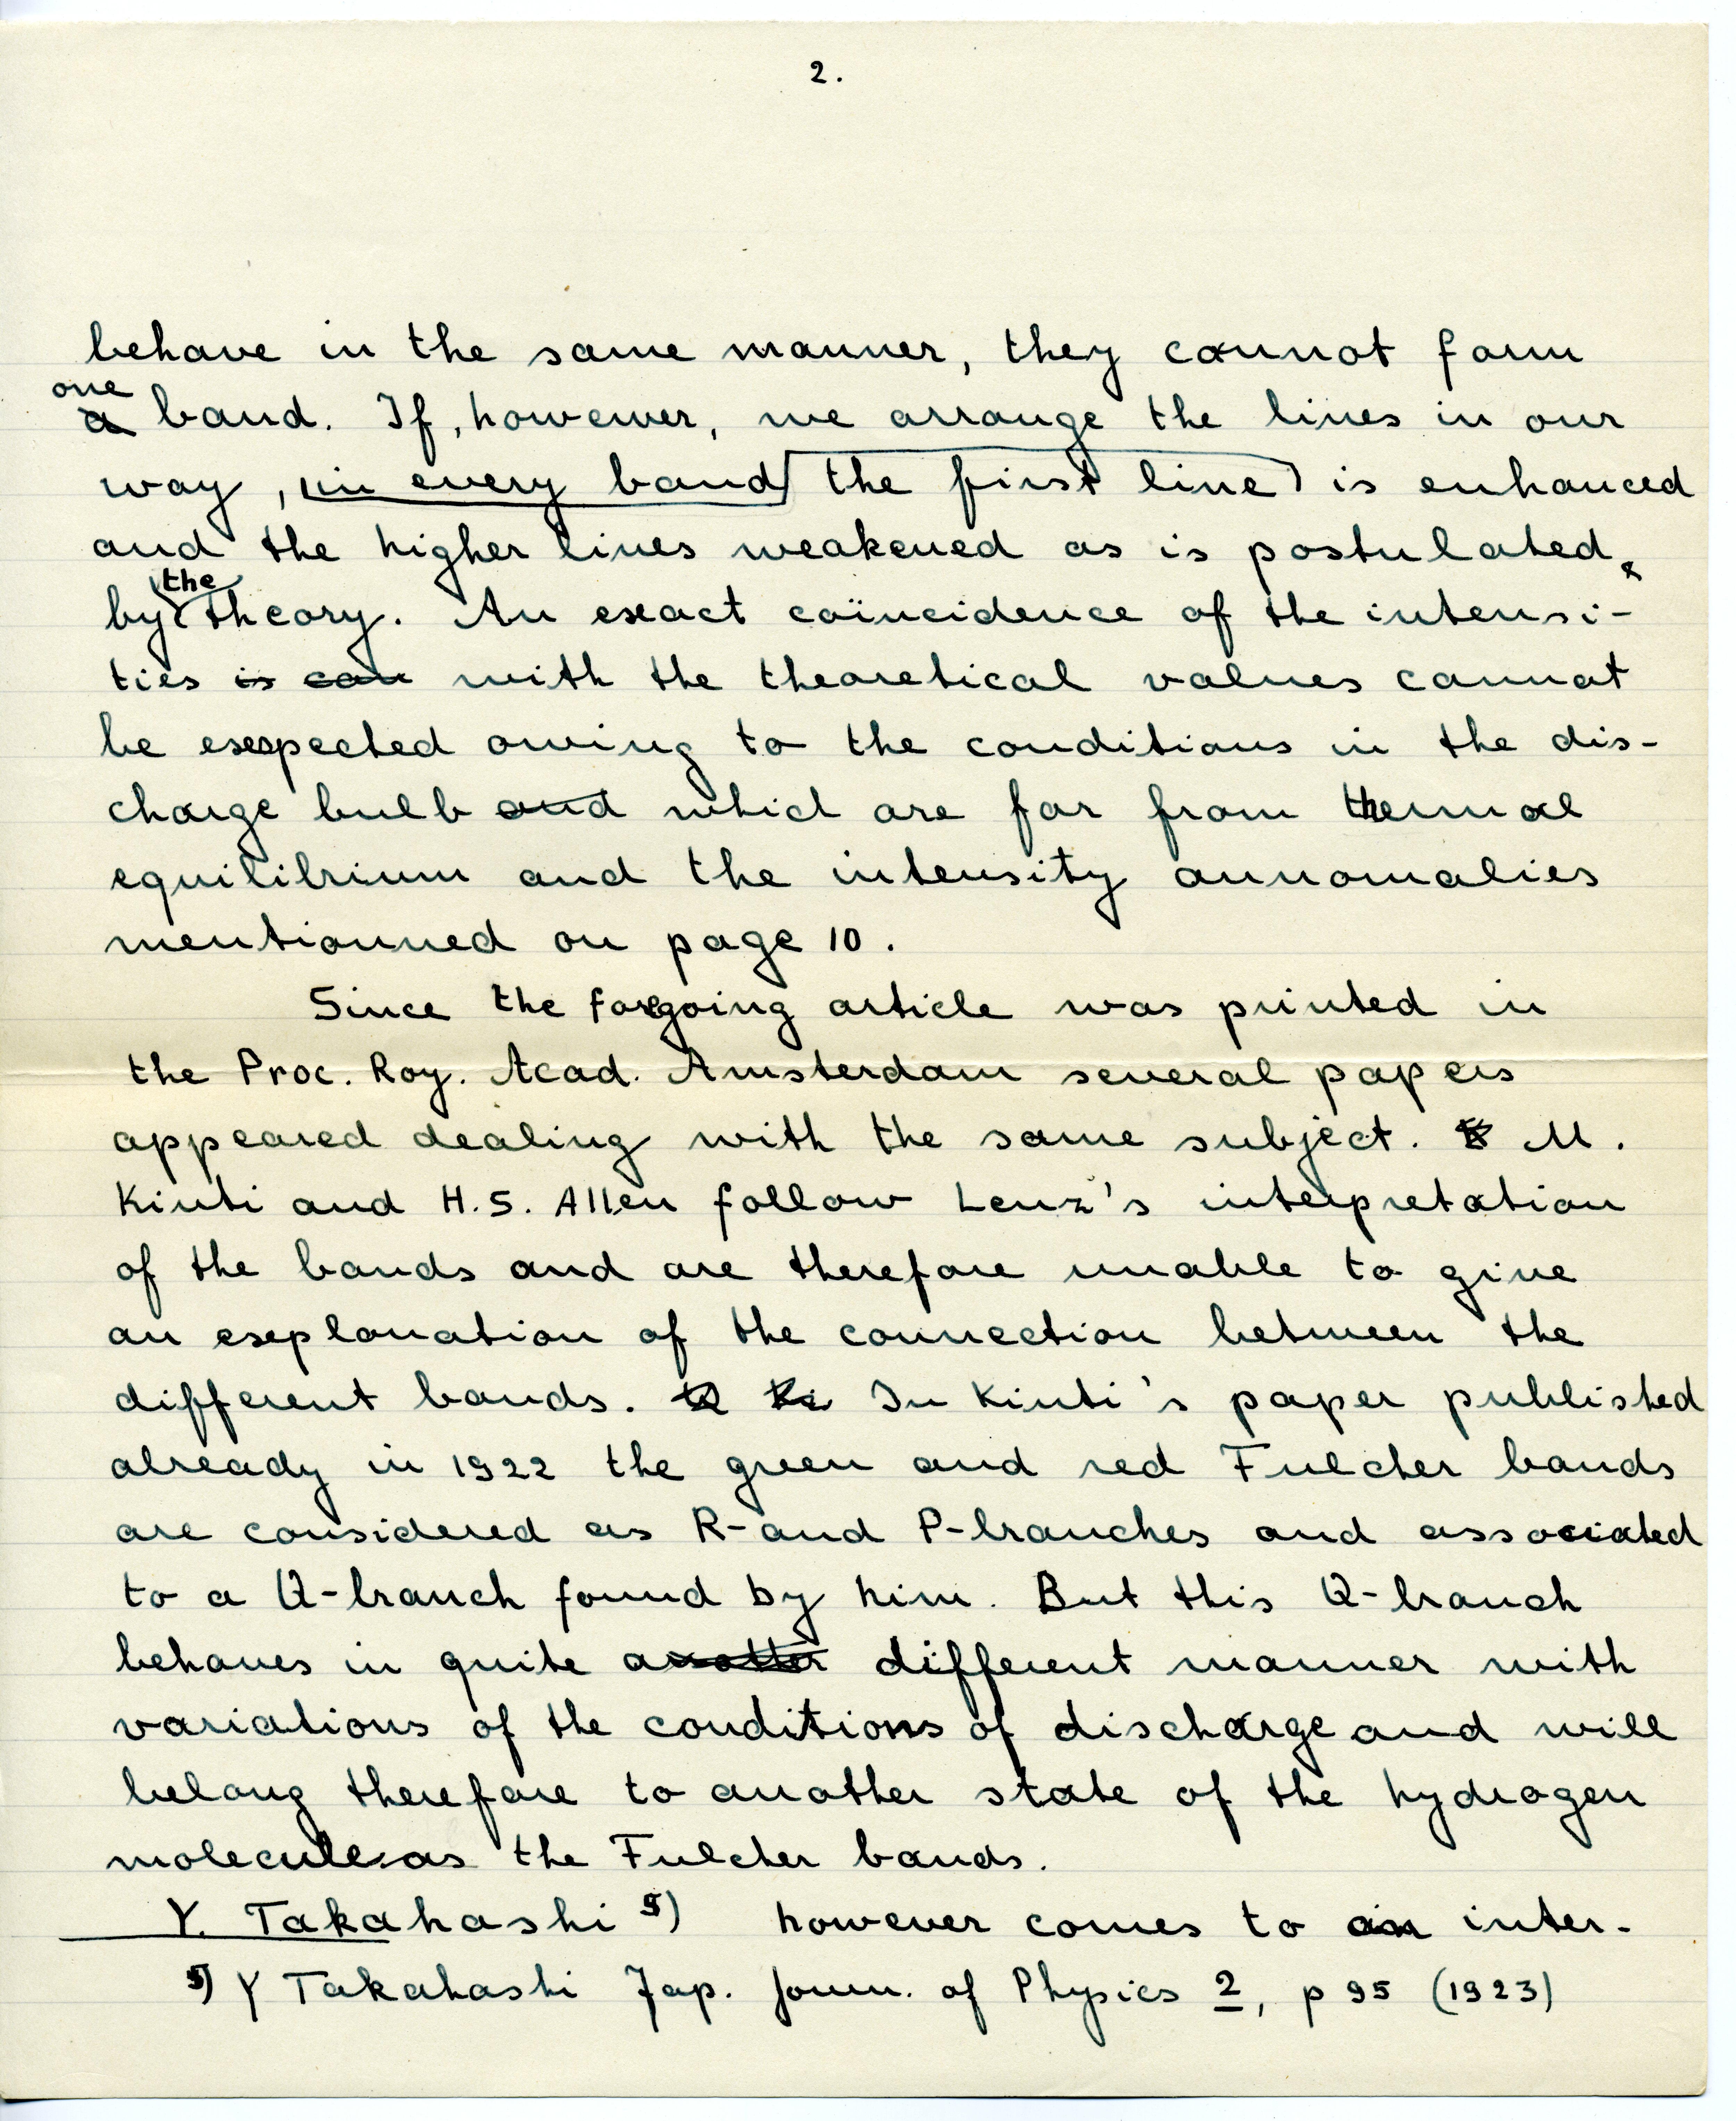 2.
behave in the same manner, they cannot form
one
a band. If, however, we arrange the lines in our
way, in every band the first line is enhanced
and the higher lines weakened as is postulated
the
by theory. An exact coïncidence of the intensi-
ties is can with the theoretical values cannot
be expected owing to the conditions in the dis-
charge bulb and which are far from thermal
equilibrium and the intensity annomalies
mentionned on page 10.
Since the foregoing article was printed in
the Proc. Roy. Acad. Amsterdam several papers
appeared dealing with the same subject. M.
Kiuti and H.S. Allen follow Lenz's interpretation
of the bands and are therefore unable to give
an explanation of the connection between the
different bands. Ki In Kiuti's paper published
already in 1922 the green and red Fulcher bands
are considered as R- and P-branches and associated
to a Q-branch found by him. But this Q-branch
behaves in quite another different manner with
variations of the conditions of discharge and will
belong therefore to another state of the hydrogen
molecule as the Fulcher bands.
Y. Takahashi 5) however comes to an inter-
5) Y Takahashi Jap. Journ. of Physics 2, p 95 (1923)